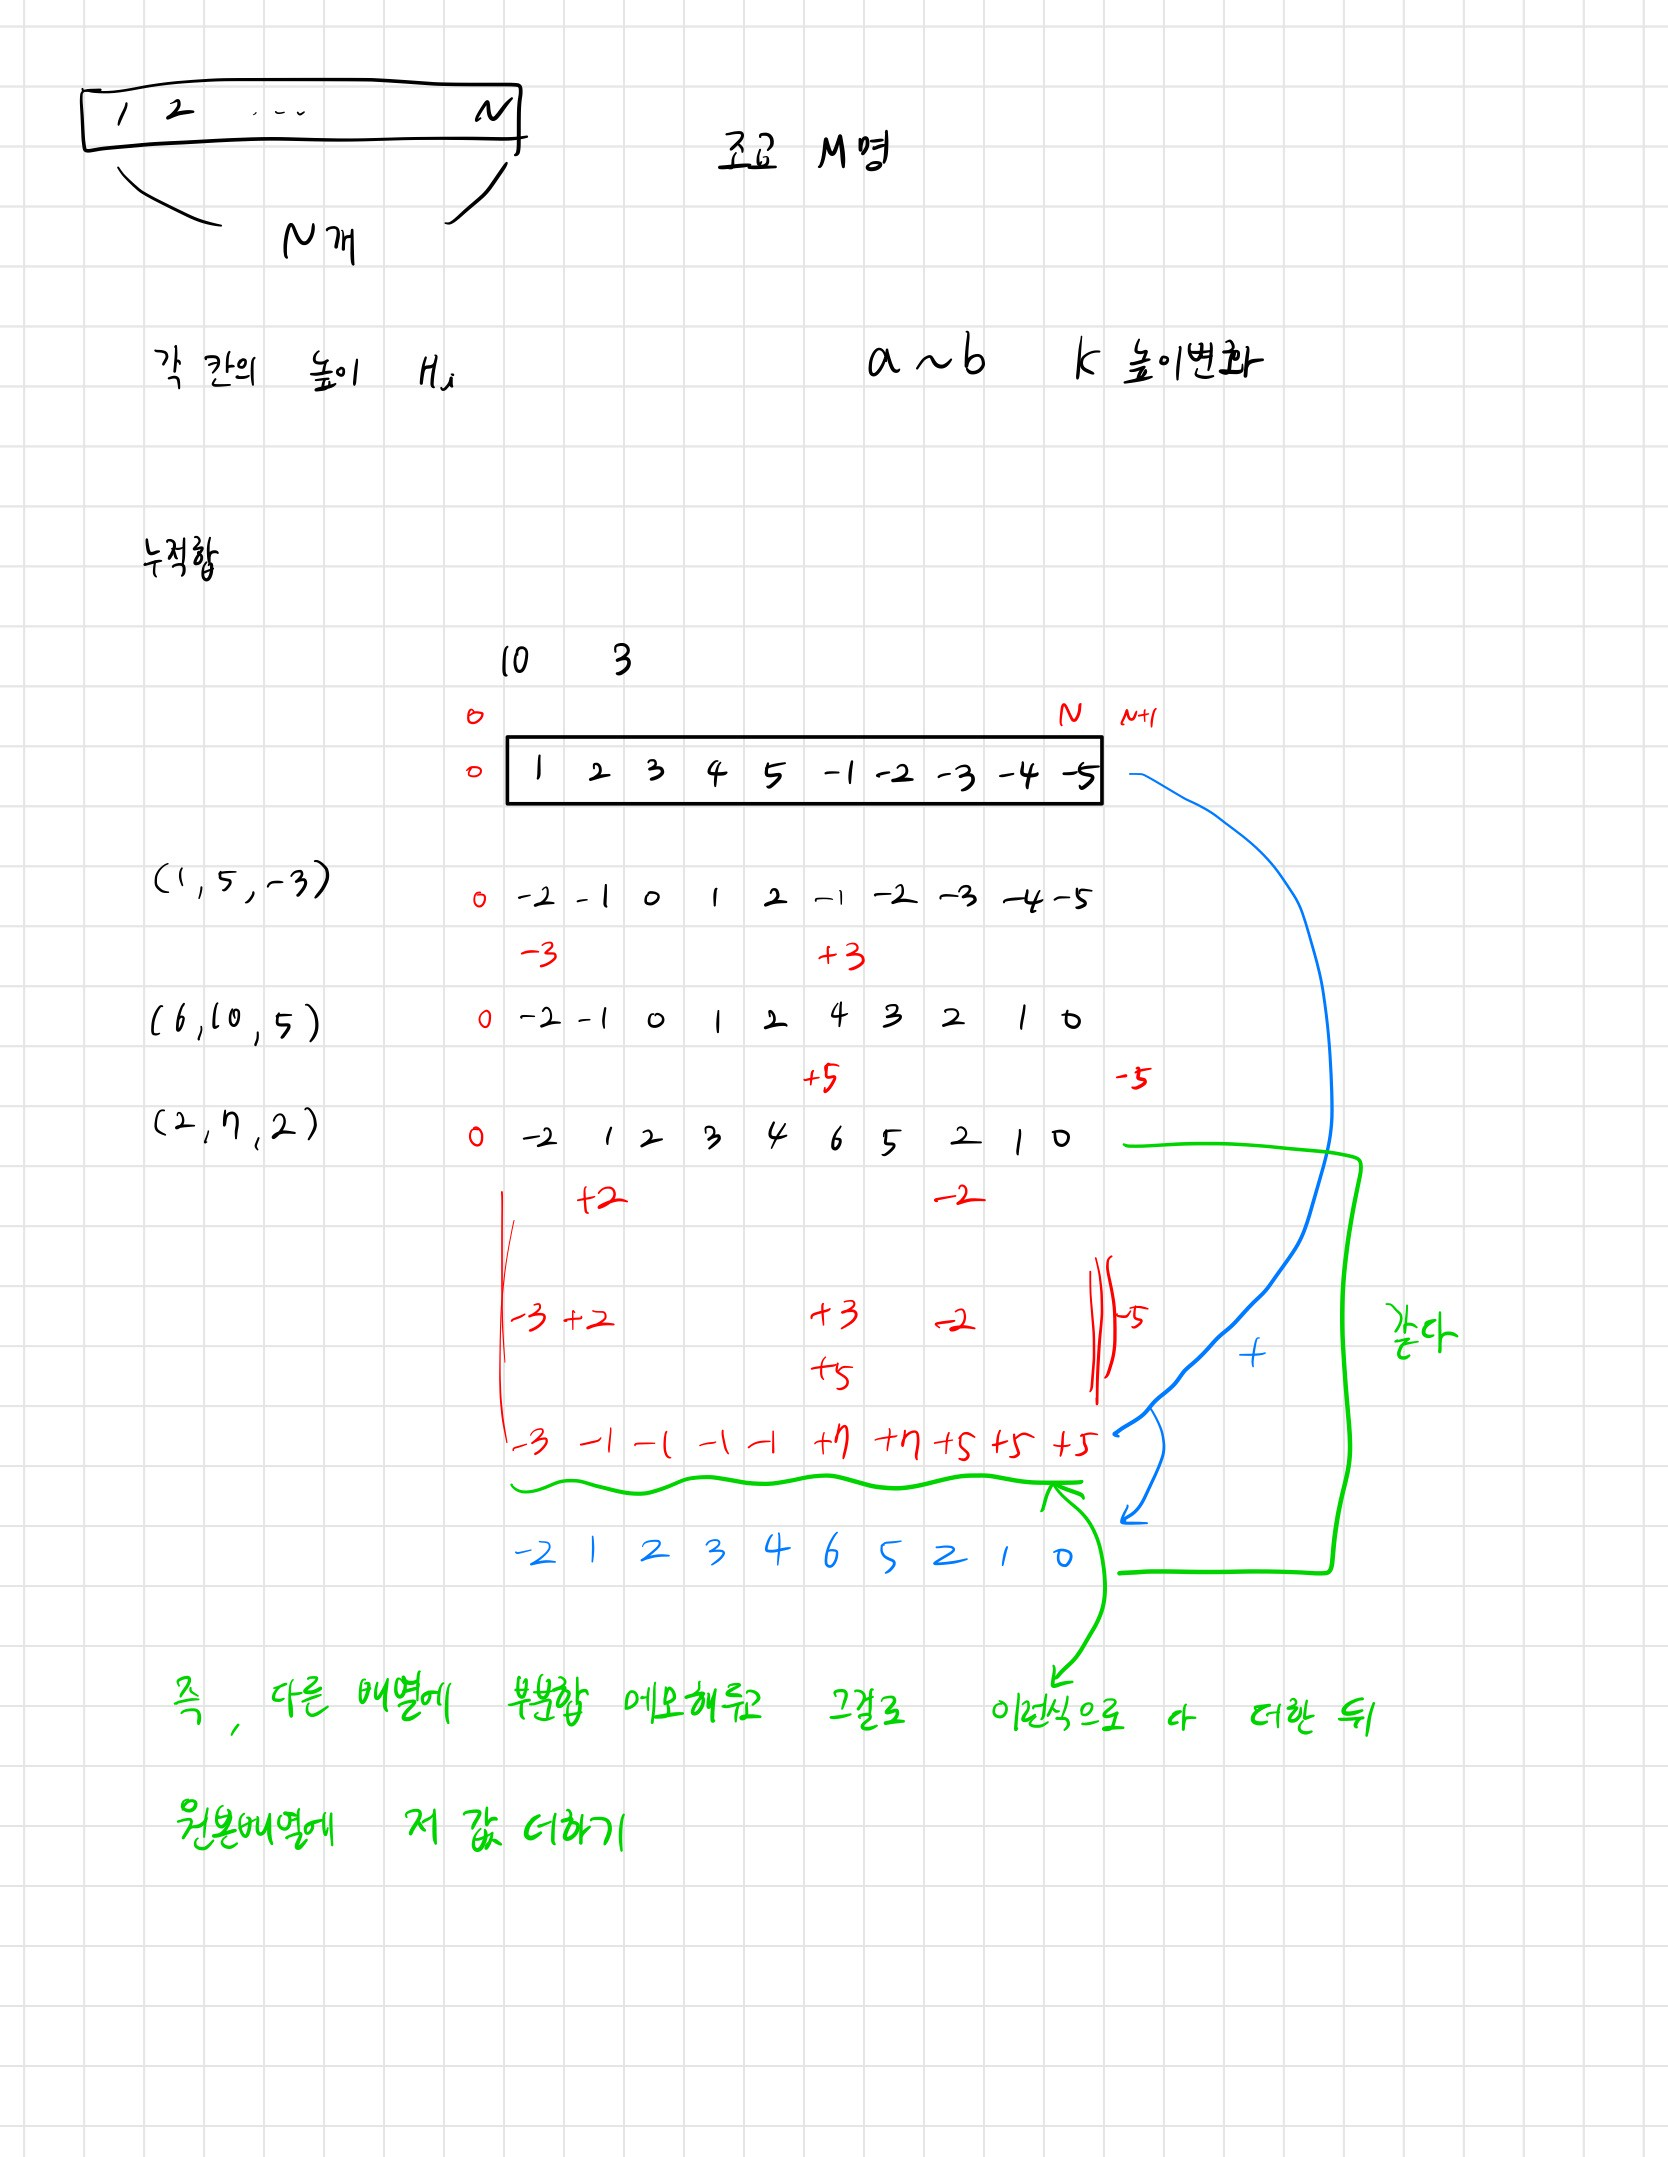 1 2 ... N
조교 M명
N개
각 칸의 높이 Hi
a ~ b K 높이변화
누적합
10 3
0 N N+1
0 1 2 3 4 5 -1 -2 -3 -4 -5
(1, 5, -3) 0 -2 -1 0 1 2 -1 -2 -3 -4 -5
-3 +3
(6, 10, 5) 0 -2 -1 0 1 2 4 3 2 1 0
+5 -5
(2, 7, 2) 0 -2 1 2 3 4 6 5 2 1 0
+2 -2
-3 +2 +3 -2 -5
같다
+
+5
-3 -1 -1 -1 -1 +7 +7 +5 +5 +5
-2 1 2 3 4 6 5 2 1 0
즉, 다른 배열에 부분합 메모해두고 그걸로 이런식으로 다 더한 뒤
원본배열에 저 값 더하기